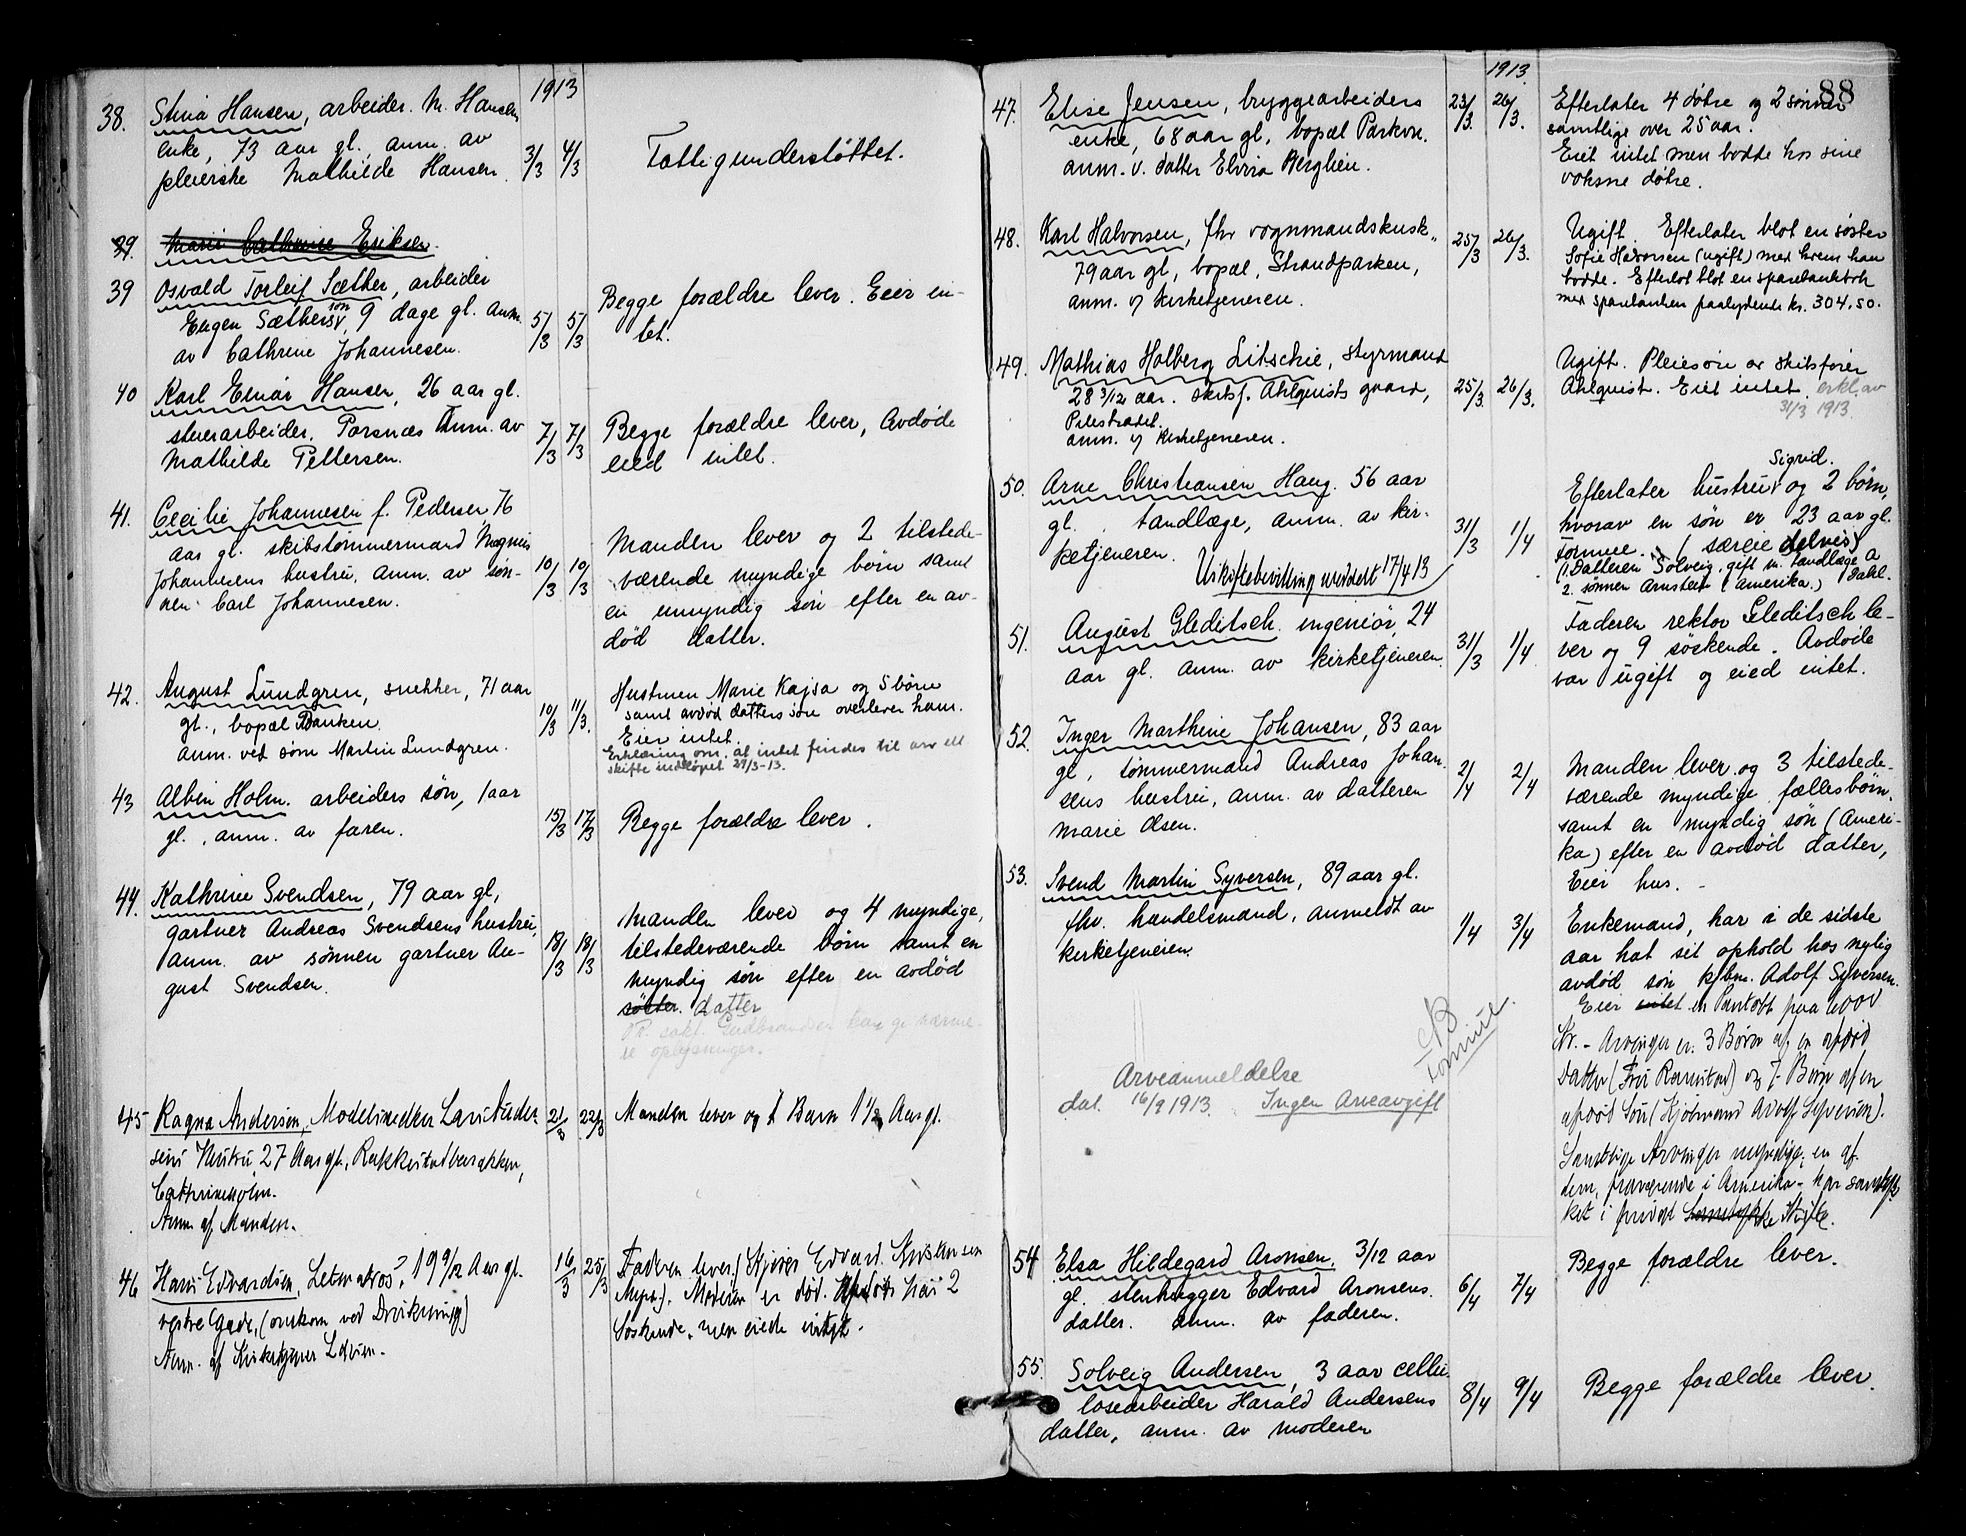 1913
38. Stina Hansen, arbeider. M. Hansens
enke, 73 aar gl., anm. av
pleierske Mathilde Hansen. 3/3 4/3
Fattigunderstöttet.
39. Marie Cathrine Eriksen.
39 Osvald Torleif Sæther, arbeider
Eugen Sæthers søn, 9 dage gl. anm.
av Cathrine Johannesen. 5/3 5/3
Begge forældre lever. Eier in-
tet.
40 Karl Einar Hansen, 26 aar gl.
stuerarbeider. Porsnæs Anm. av
Mathilde Pettersen. 7/3 7/3
Begge forældre lever, Avdøde
eied intet.
41. Cecilie Johannesen f. Pedersen, 76
aar gl. skibstømmermand Magnus
Johannesens hustru. anm. av søn-
nen Carl Johannesen. 10/3 10/3
Manden lever og 2 tilstede-
værende myndige børn samt
en umyndig søn efter en av-
död datter.
42. August Lundgren, snekker, 71 aar
gl., bopæl Banken.
anm. ved søn Martin Lundgren. 10/3 11/3.
Hustruen Marie Kajsa og 5 børn
samt avdød datters søn overlever ham.
Eier intet.
Erklæring om, at intet findes til arv ell.
skifte indløpet 29/3-13.
43 Albin Holm. arbeiders søn, 1 aar
gl., anm. av faren. 15/3 17/3
Begge forældre lever.
44. Kathrine Svendsen, 79 aar gl,
gartner Andreas Svendsens hustru,
anm. av sønnen gartner Au-
gust Svendsen. 18/3 18/3
Manden lever og 4 myndige,
tilstedeværende børn samt en
myndig søn efter en avdöd
søster. datter
OR. sakf. Gudbrandsen kan gi nærme-
re oplysninger.
45 Ragna Andersen, Modelsnedker Lars Ander-
sens Hustru, 27 Aar gl., Rakkestadbarakken,
Cathrineholm.
Anm. af Manden. 21/3 22/3
Manden lever og 1 Barn 1 1/2 Aar gl.
46 Hans Edvardsen, Letmatros, 19 9/12 Aar gl.
vestre Gade, (omkom ved Drukning)
Anm. af Kirketjener 16/3 25/3
Faderen lever, Edvard Kristiansen
Moderen er død. Afdøde har 2
Søskende, men eiede intet.
88
1913.
47. Elise Jensen, bryggearbeiders
enke, 68 aar gl, bopæl Parkvn.
anm. v. datter Elvira Berglien. 23/3. 26/3.
Efterlater 4 døtre og 2 sønner
samtlige over 25 aar.
Eiet intet men bodde hos sine
voksne døtre.
48. Karl Halvorsen, fhv vognmandskusk,
79 aar gl, bopæl, Strandparken,
anm. v/ Kirketjeneren. 25/3 26/3.
Ugift. Efterlater blot en søster
Sofie Halvorsen (ugift) med hvem han
bodde. Efterlot blot en sparebankbok
med sparebanken paalydende kr. 304.50.
49. Mathias Holberg Litschie, styrmand
28 3/12 aar. skibsf. Ahlquists gaard,
Pilestrædet.
anm. v/ Kirketjeneren. 25/3. 26/3.
Ugift. Pleiesøn av skibsfører
Ahlquist. Eiet intet. erkl. av
31/3 1913.
50. Arne Christiansen Haug. 56 aar
gl. tandlæge, anm. av kir-
ketjeneren. 31/3 1/4
Uskiftebevilling meddelt 17/4 13
Sigrid.
Efterlater hustru og 2 børn,
hvorav en søn er 23 aar gl.
Formue. (særeie delvis)
(1. Datteren Solveig, gift m. tandlæge A
Dahl.
2. sønnen Arnstein (Amerika.)
51. August Gleditsch. ingeniør, 24
aar gl. anm. av kirketjeneren. 31/3 1/4
Faderen rektor Gleditsch le-
ver og 9 søskende. Avdøde
var ugift og eied intet.
52. Inger Marthine Johansen, 83 aar
gl, tømmermand Andreas Johan-
sens hustru, anm. av datteren
Marie Olsen. 2/4 2/4
Manden lever og 3 tilstede-
værende myndige fællesbørn.
samt en myndig søn (Ameri-
ka) efter en avdød datter,
Eier hus.
53. Svend Martin Syversen, 89 aar gl.
fhv. handelsmand, anmeldt av
kirketjeneren. 1/4 3/4
Enkemand, har i de sidste
aar hat sit ophold hos nylig
avdød søn kjbm. Adolf Syversen.
Eier intet en Pantobl paa 6000
Kr. - Arvinger er 3 Børn af en afdød
Datter (Fru Ramstad) og 7 Børn af en
afdød Søn (Kjøbmand Adolf Syversen).
Samtlige Arvinger myndige; en af
dem, fraværende i Amerika - har samtyk-
ket i privat Skifte.
NB
formue.
Arveanmeldelse
dat. 16/9 1913. Ingen Arveavgift
54 Elsa Hildegard Aronsen. 3/12 aar
gl. stenhugger Edvard Aronsens
datter. anm. av faderen. 6/4 7/4
Begge forældre lever.
55. Solveig Andersen, 3 aar cellu-
losearbeider Harald Andersens
datter, anm. av moderen 8/4 9/4
Begge forældre lever.